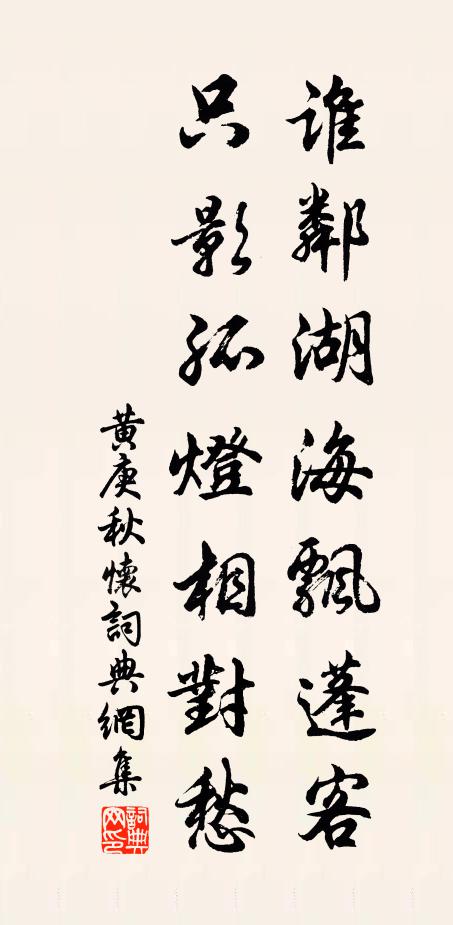 誰鄰湖海飄蓬客
只影孤燈相對愁
黃庚秋懷詞典網集
詞典网印